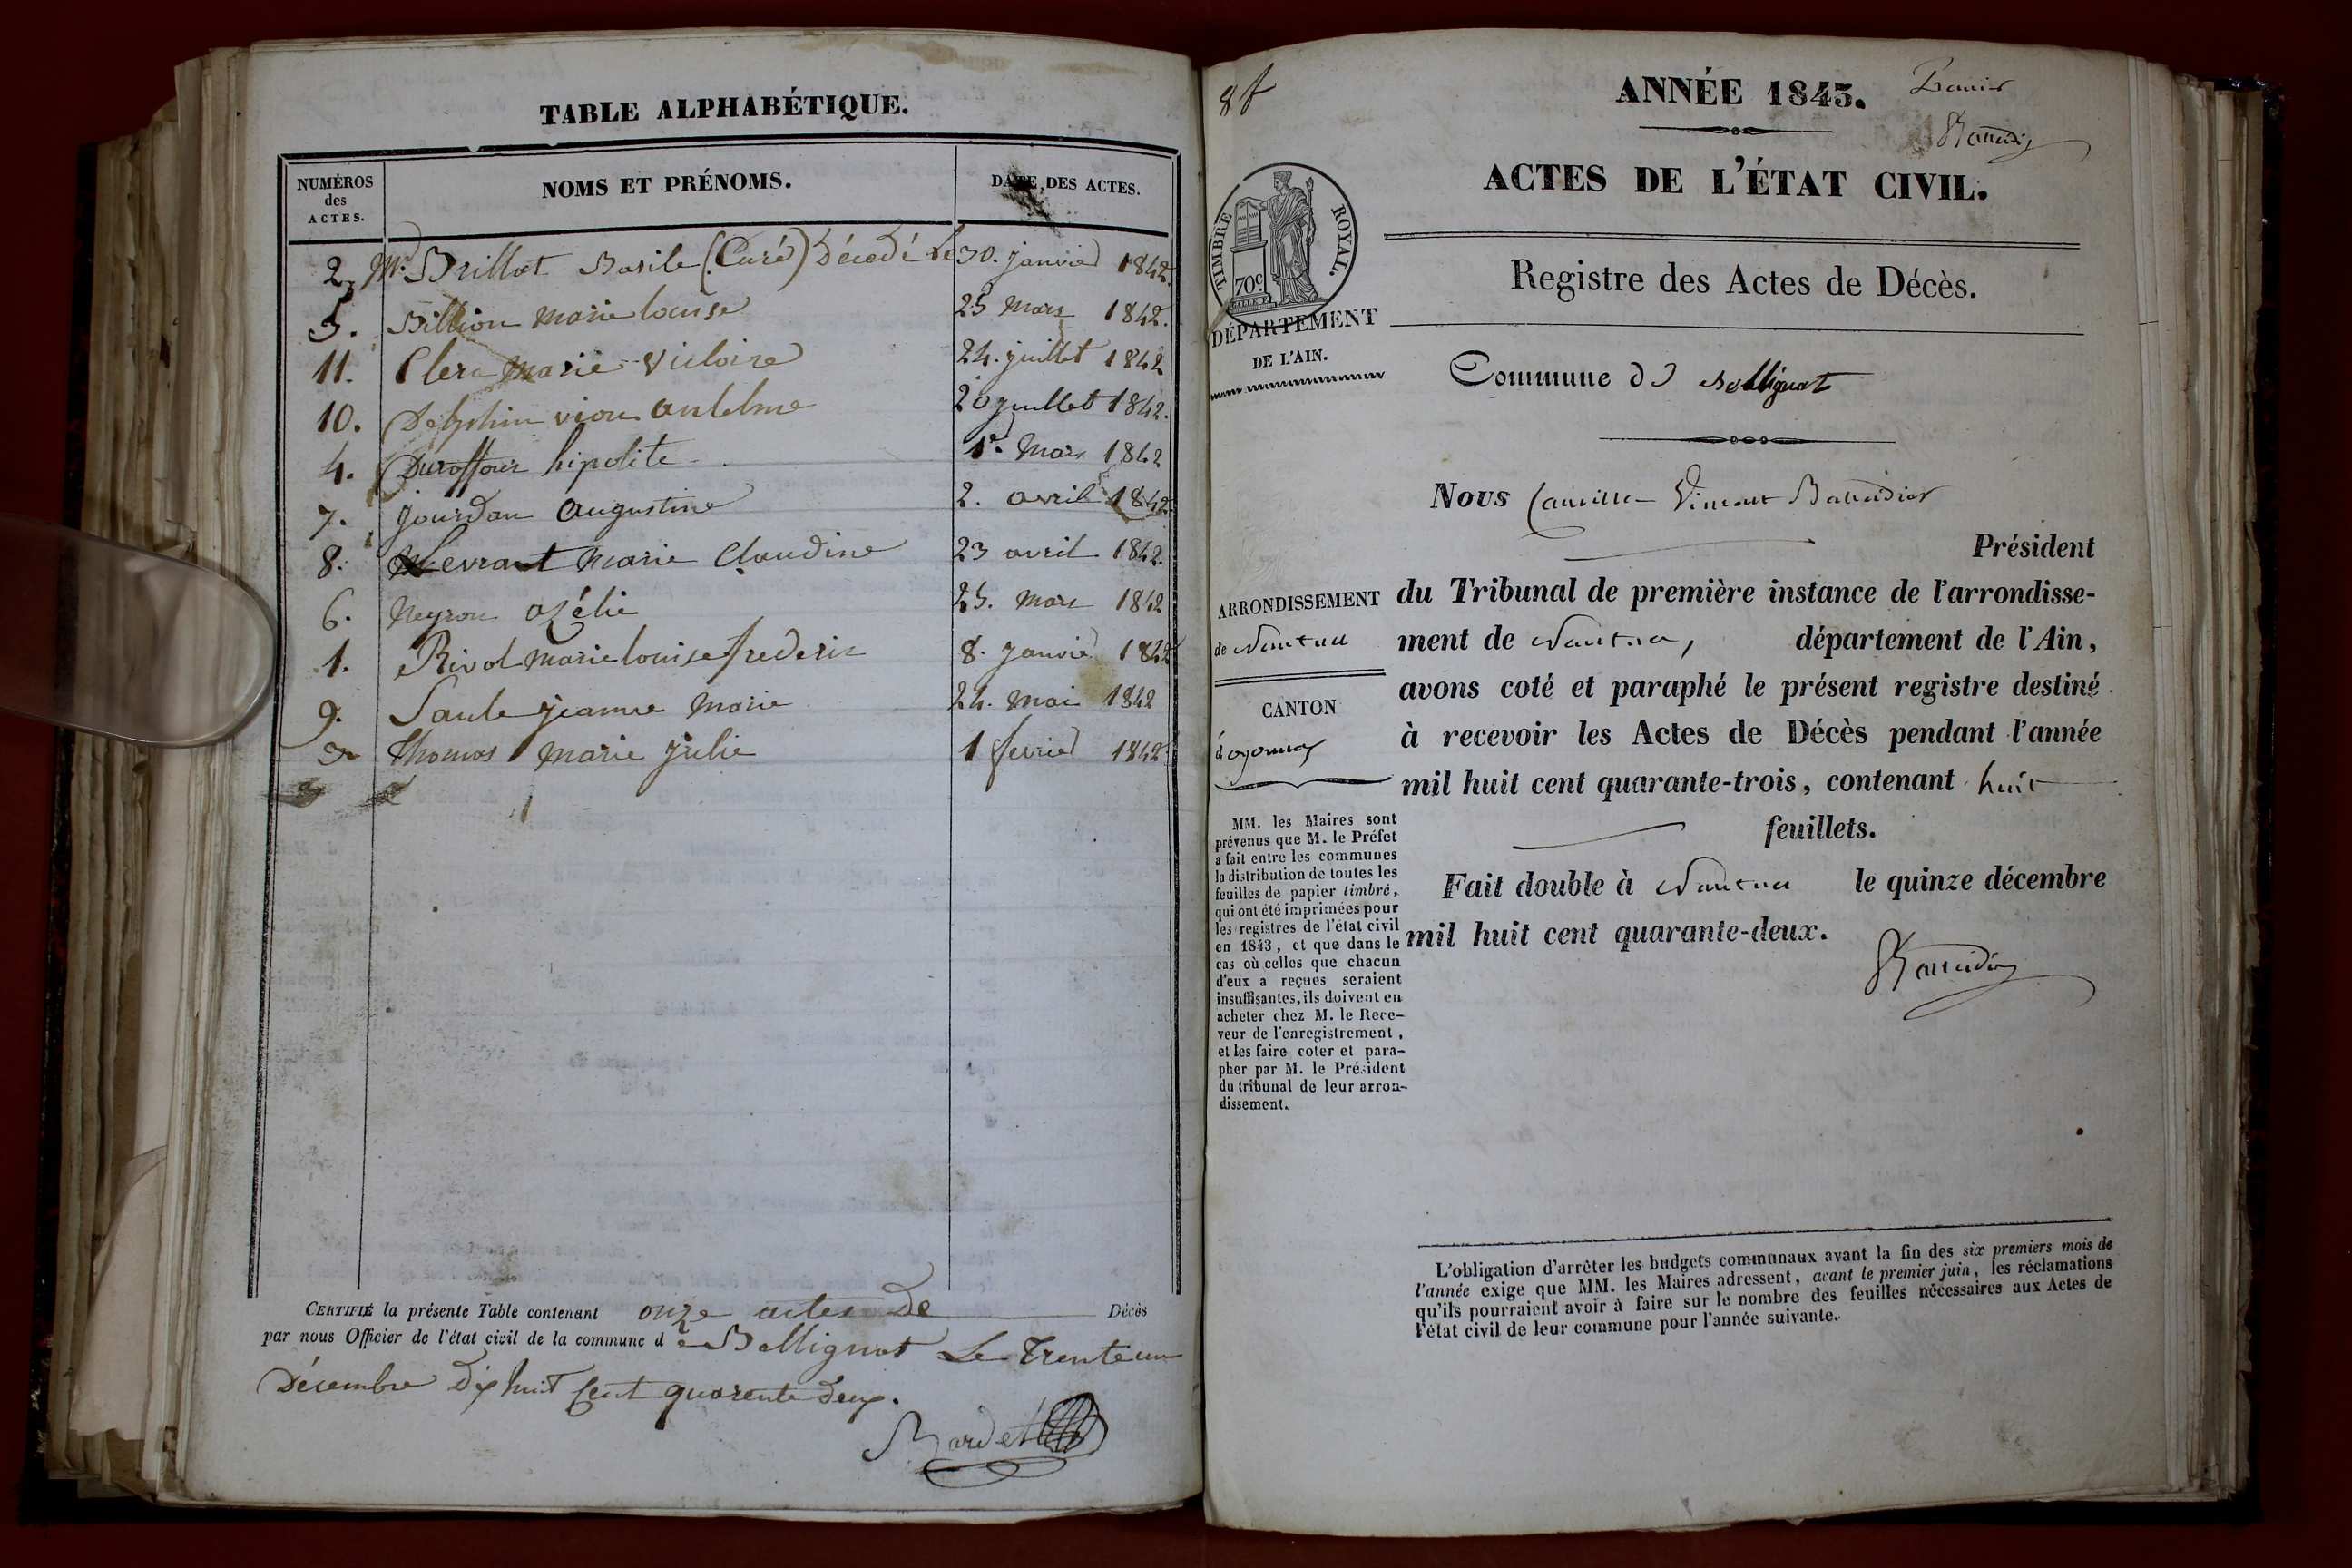 TABLE ALPHABÉTIQUE.
NUMÉROS des ACTES. NOMS ET PRÉNOMS. DATE DES ACTES.
2. Mr. Brillat Basile (Curé) Décédé le 30. janvier 1842.
5. Billion marie louise 25 mars 1842.
11. Clerc marie victoire 24. juillet 1842
10. Delphin viou antelme 20 juillet 1842.
4. Duraffour hipolite 1er mars 1842
7. jourdan augustine 2. avril 1842
8. Levrat marie Claudine 23 avril 1842.
6. Neyron azélie 25. mars 1842
1. Rivol marie louise frederic 8. janvier 1842
9. Saule jeanne marie 24. mai 1842
3. Thomas marie julie 1 fevrier 1842
CERTIFIÉ la présente Table contenant onze actes de Décès
par nous Officier de l'état civil de la commune de Bellignat Le Trente un
Décembre dix huit cent quarente deux.
8 f
ANNÉE 1843. Premier
ACTES DE L'ÉTAT CIVIL.
TIMBRE ROYAL.
70c
Registre des Actes de Décès.
DÉPARTEMENT
DE L'AIN.
Commune de Bellignat
Nous Camille Vincent
Président
ARRONDISSEMENT
de Nantua
CANTON
d'oyonnax
du Tribunal de première instance de l'arrondisse-
ment de Nantua, département de l'Ain,
avons coté et paraphé le présent registre destiné
à recevoir les Actes de Décès pendant l'année
mil huit cent quarante-trois, contenant huit
feuillets.
Fait double à Nantua le quinze décembre
mil huit cent quarante-deux.
MM. les Maires sont
prévenus que M. le Préfet
a fait entre les communes
la distribution de toutes les
feuilles de papier timbré,
qui ont été imprimées pour
les registres de l'état civil
en 1843, et que dans le
cas où celles que chacun
d'eux a reçues seraient
insuffisantes, ils doivent en
acheter chez M. le Rece-
veur de l'enregistrement,
et les faire coter et para-
pher par M. le Président
du tribunal de leur arron-
dissement.
L'obligation d'arrêter les budgets communaux avant la fin des six premiers mois de
l'année exige que MM. les Maires adressent, avant le premier juin, les réclamations
qu'ils pourraient avoir à faire sur le nombre des feuilles nécessaires aux Actes de
l'état civil de leur commune pour l'année suivante.